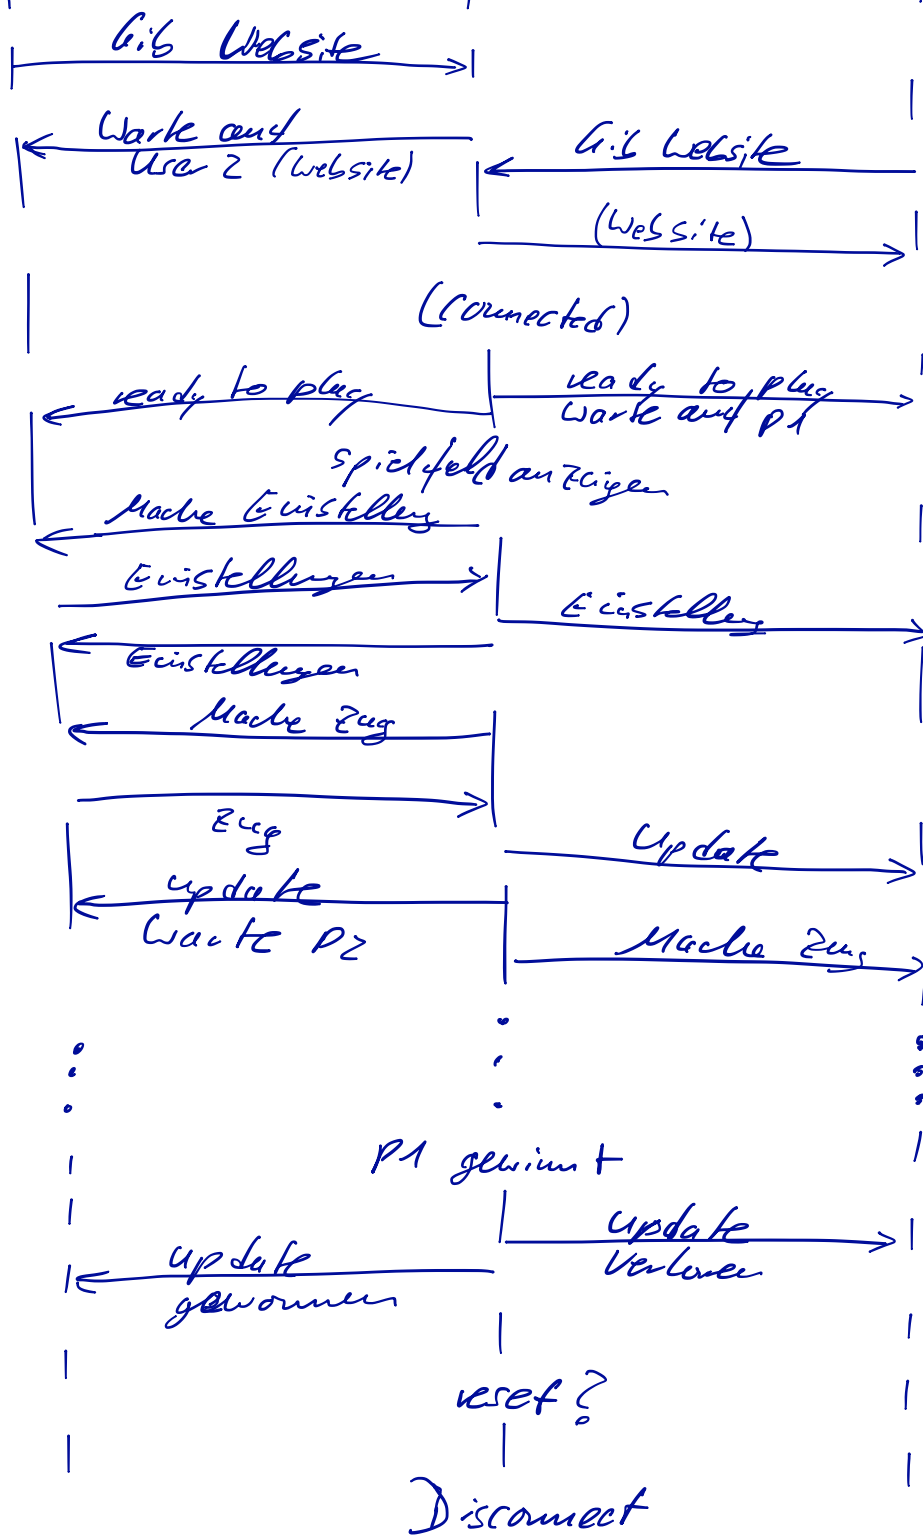 Gib Website
Warte auf
User 2 (Website)
Gib Website
(Website)
(Connected)
ready to play
ready to play
warte auf P1
Spielfeld anzeigen
Mache Einstellung
Einstellungen
Einstellung
Einstellungen
Mache Zug
Zug
update
update
Warte P2
Mache Zug
P1 gewinnt
update
Verloren
update
gewonnen
reset?
Disconnect